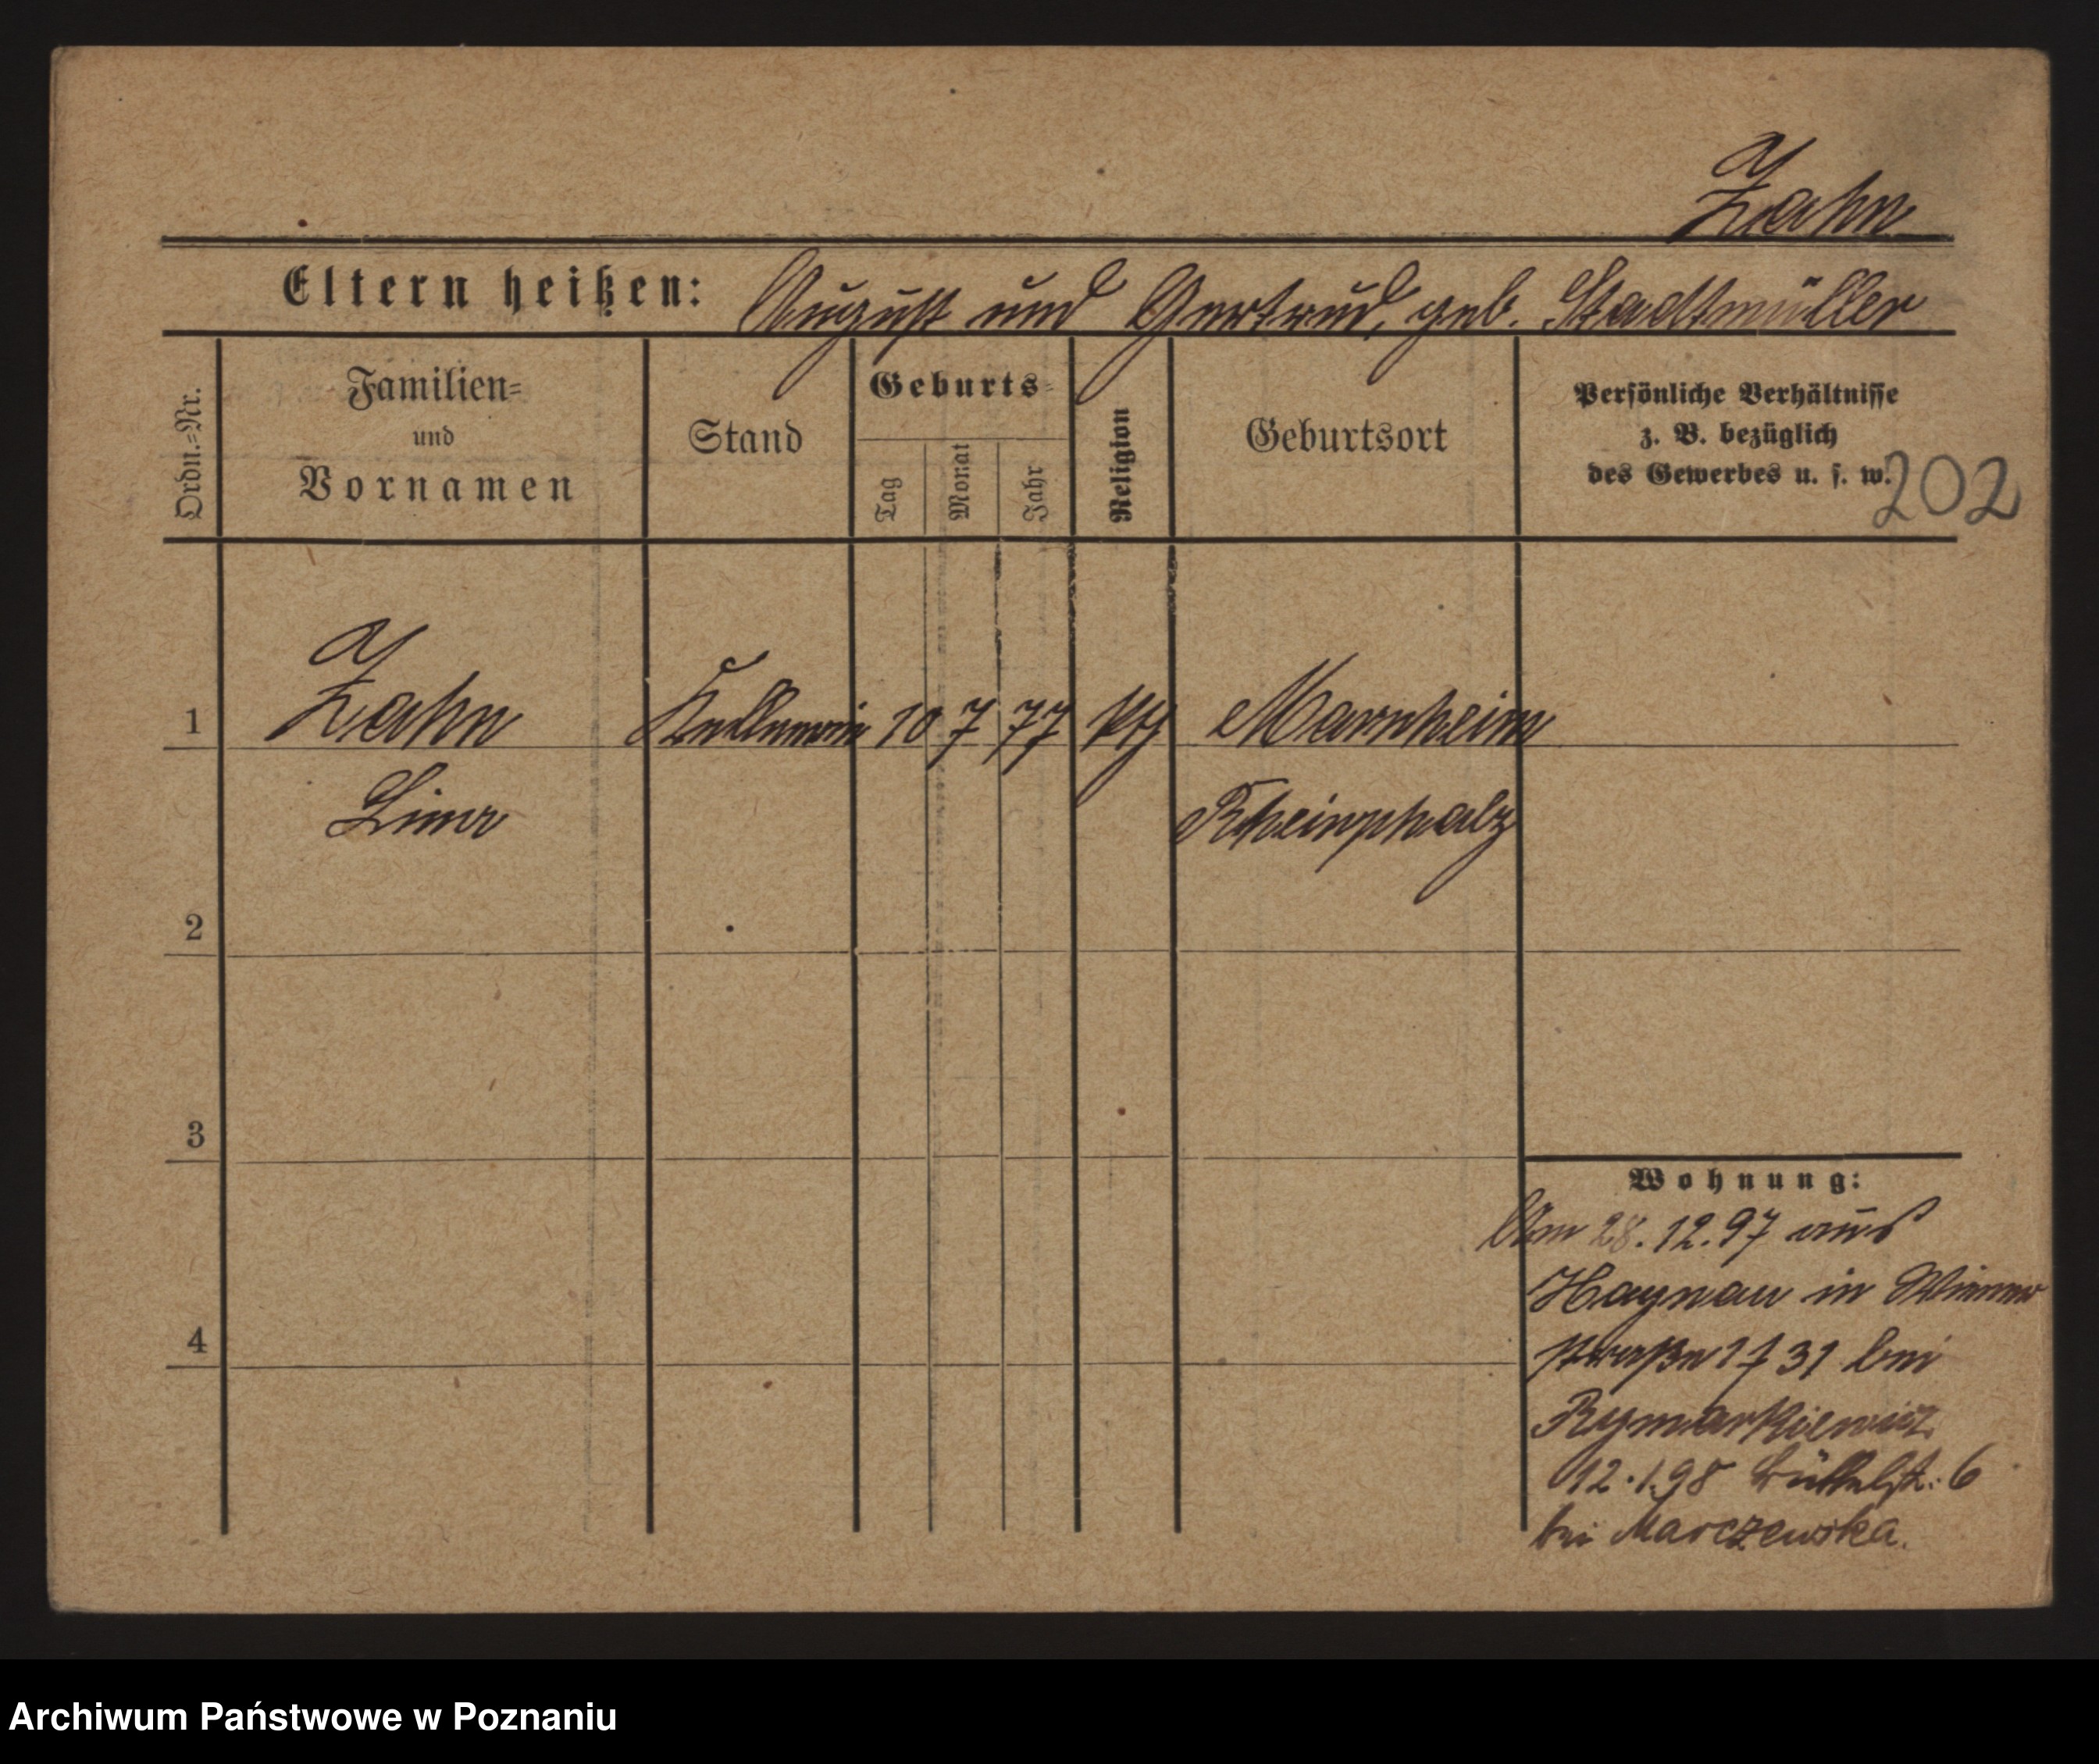 Zahn
Eltern heißen: August und Gertrud, geb. Stadtmüller
Ordn.-Nr.
Familien-
und
Vornamen
Stand
Geburts-
Tag
Monat
Jahr
Religion
Geburtsort
Persönliche Verhältnisse
z. B. bezüglich
des Gewerbes u. s. w.
202
1 Zahn Kellnerin 10 7 77 Marnheim
Rheinphalz
2
3
4
Wohnung:
Am 28.12.97 aus
Haynau in Wiener
straße 1 31 bei
Rymarkiewicz
12.1.98 Büttelstr. 6
bei Marczewska.
Archiwum Państwowe w Poznaniu